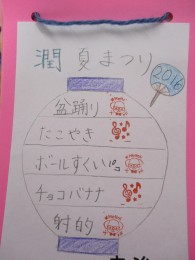 潤 夏まつり
2016
盆踊り
たこやき
ボールすくい
チョコバナナ
射的